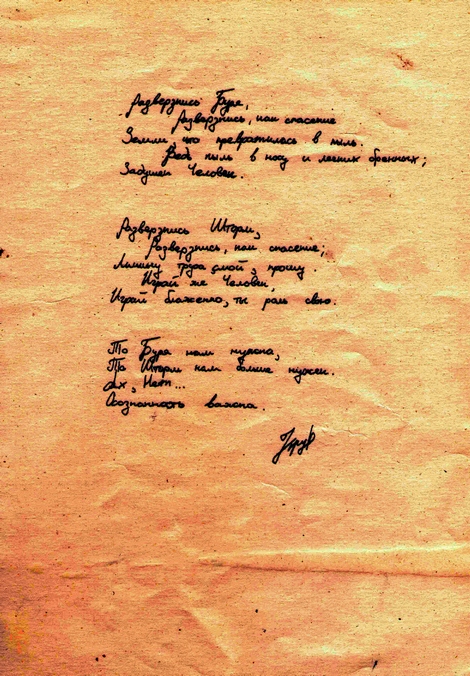 Разверзнись Буря,
Разверзнись, нам спасение
Земли, что превратилась в пыль.
Ведь пыль в носу и легких бренных;
Задушен Человек.
Разверзнись Шторм,
Разверзнись, нам спасение;
труда смой, прошу.
Играй же Человек,
Играй блаженно, ты роль свою.
То Буря нам нужна,
То Шторм нам больше нужен.
Ах, Нет...
Осознанность важна.